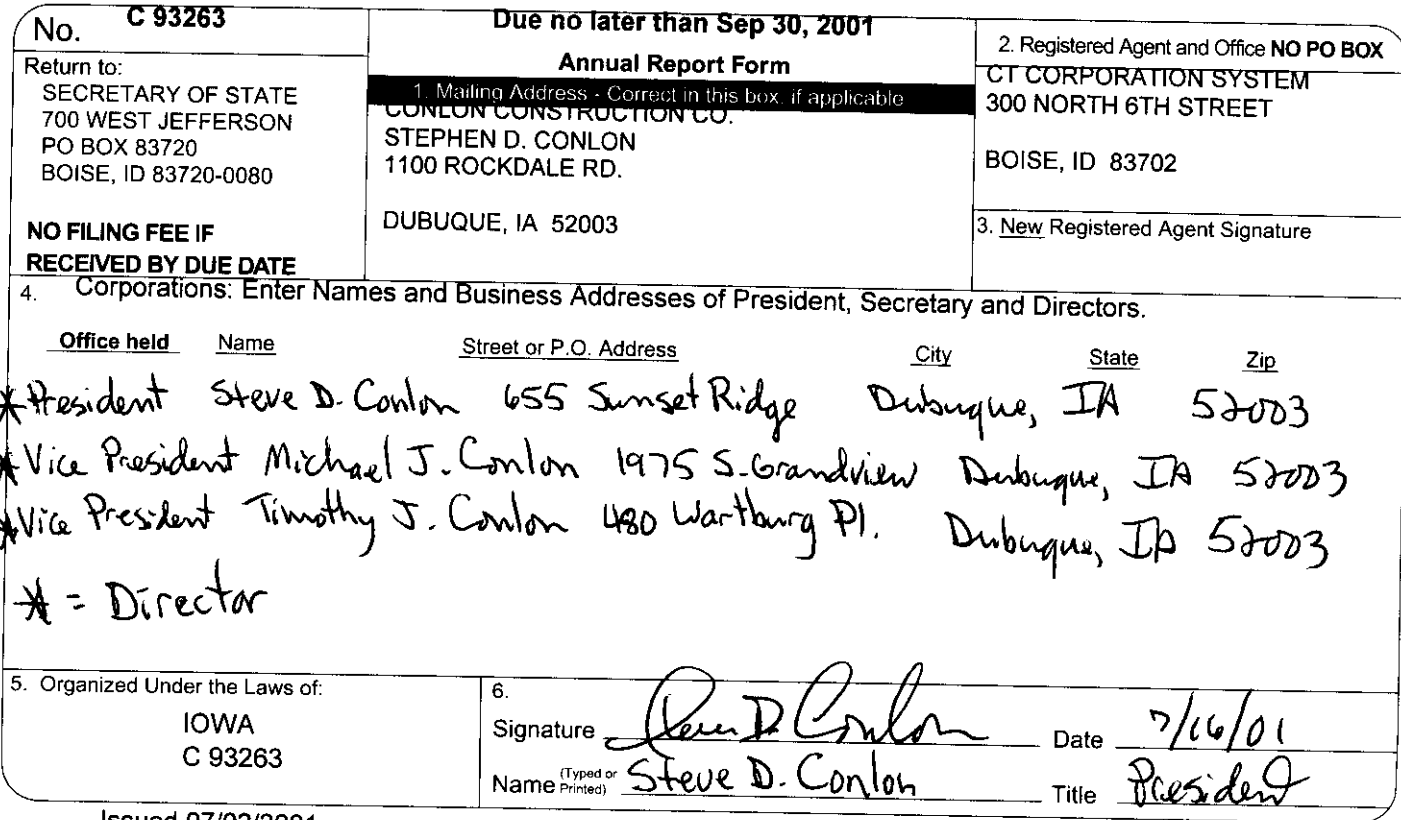 No. C 93263
Return to:
SECRETARY OF STATE
700 WEST JEFFERSON
PO BOX 83720
BOISE, ID 83720-0080
NO FILING FEE IF
RECEIVED BY DUE DATE
Due no later than Sep 30, 2001
Annual Report Form
1. Mailing Address - Correct in this box, if applicable
CONLON CONSTRUCTION CO.
STEPHEN D. CONLON
1100 ROCKDALE RD.
DUBUQUE, IA 52003
2. Registered Agent and Office NO PO BOX
CT CORPORATION SYSTEM
300 NORTH 6TH STREET
BOISE, ID 83702
3. New Registered Agent Signature
4. Corporations: Enter Names and Business Addresses of President, Secretary and Directors.
Office held Name Street or P.O. Address City State Zip
* President Steve D. Conlon 655 Sunset Ridge Dubuque, IA 52003
* Vice President Michael J. Conlon 1975 S. Grandview Dubuque, IA 52003
* Vice President Timothy J. Conlon 480 Wartburg Pl. Dubuque, IA 52003
* = Director
5. Organized Under the Laws of:
IOWA
C 93263
6.
Signature Steve D. Conlon Date 7/16/01
Name (Typed or Printed) Steve D. Conlon Title President
Issued 07/02/2001